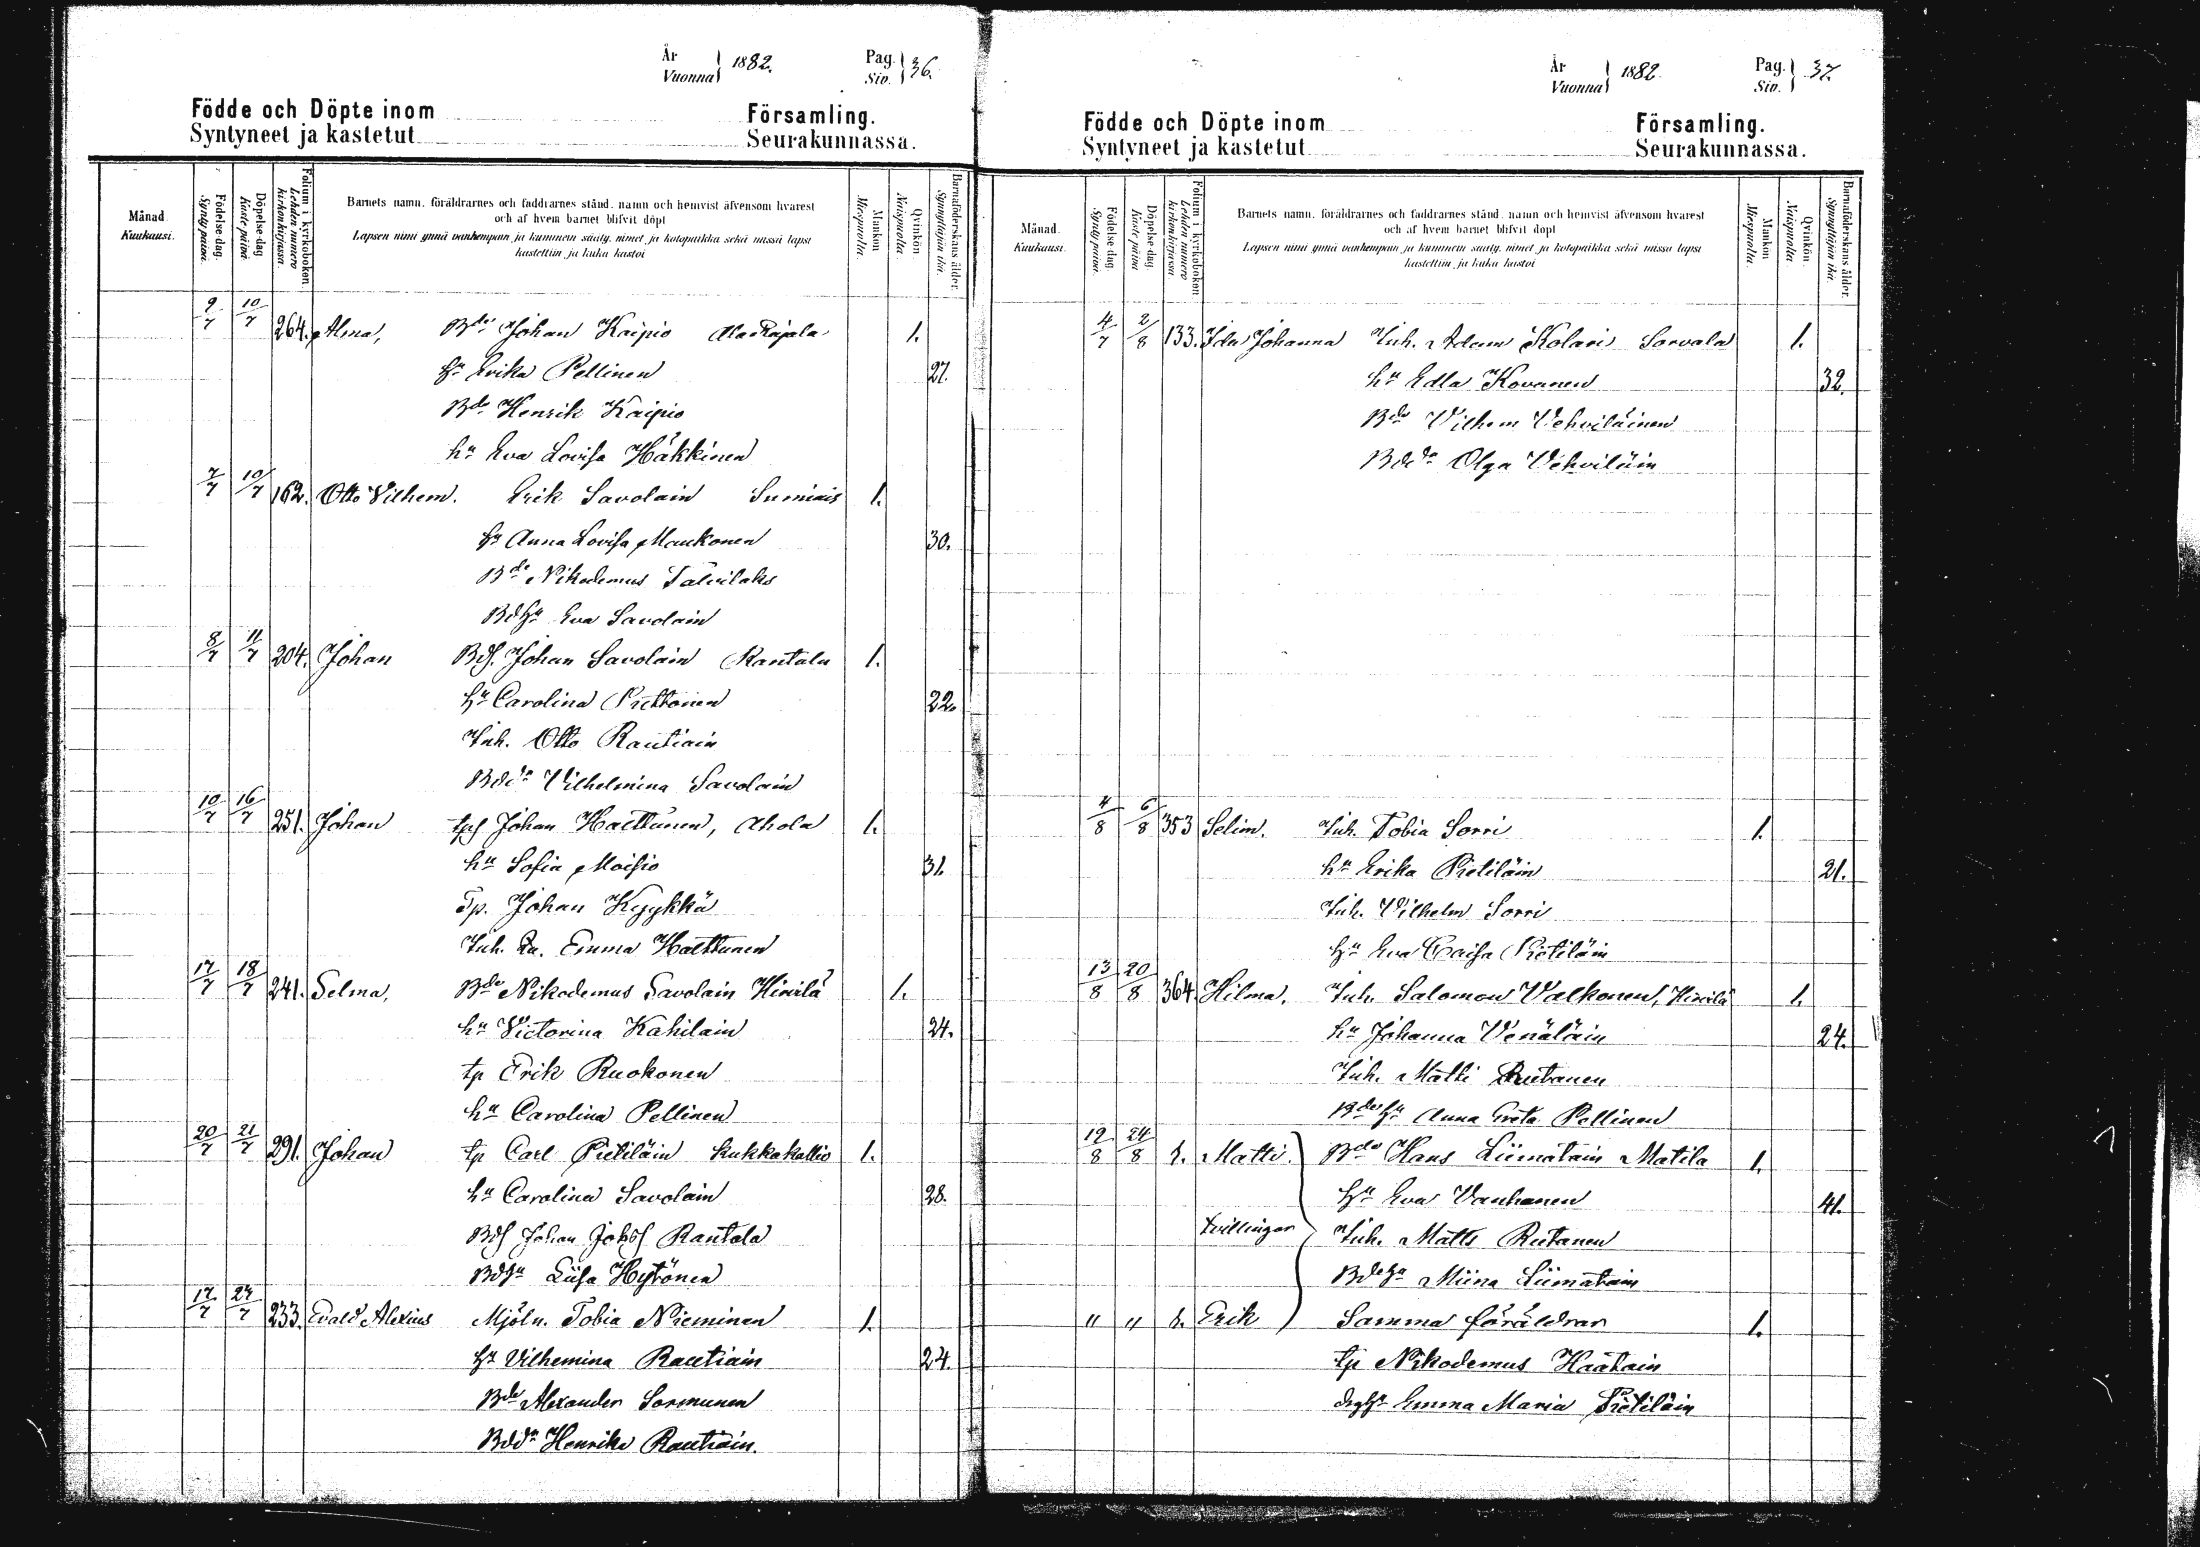 År 1882. Pag. 36.
Vuonna Siv.
Födde och Döpte inom Församling.
Syntyneet ja kastetut Seurakunnassa.
Månad. Kuukausi.
Födelse dag. Synty päivä.
Döpelse dag. Kaste päivä.
Folium i kyrkoboken Lehden numero kirkonkirjassa.
Barnets namn, föräldrarnes och faddrarnes stånd, namn och hemvist äfvensom hvarest
och af hvem barnet blifvit döpt
Lapsen nimi ynnä vanhempain ja kummein sääty, nimet ja kotopaikka sekä missä lapsi
kastettiin ja kuka kastoi
Mankön Miespuolia.
Qvinkön Naispuolia.
Barnaföderskans ålder. Synnyttäjän ikä.
9/7 10/7 264. Alma, Bde Johan Kaipio Ala Rajala 1.
hu Erika Pellinen 27.
Bde Henrik Kaipio
hu Eva Lovisa Häkkinen
7/7 10/7 162. Otto Vilhem. Erik Savolain Sumiais 1.
hu Anna Lovisa Maukonen 30.
Bde Nikodemus Talvilaks
Bdhu Eva Savolain
8/7 11/7 204. Johan Bds. Johan Savolain Rantala 1.
hu Carolina Piettonen 22.
Inh. Otto Rautiain
Bddr Vilhelmina Savolain
10/7 16/7 251. Johan tps Johan Haettunen, Ahola 1.
hu Sofia Moisio 31.
Tp. Johan Kyykkä
Inh. Emma Haettunen
17/7 18/7 241. Selma, Bde Nikodemus Savolain Hirvilä 1.
hu Victorina Kahilain 24.
tp Erik Ruokonen
hu Carolina Pellinen
20/7 21/7 291. Johan tp Carl Pietiläin Kukkakallio 1.
hu Carolina Savolain 28.
Bds Johan Johss Rantala
Bdhu Liisa Hytönen
17/7 27/7 233. Evald Alexius Mjöln. Tobia Nieminen 1.
hu Vilhemina Rautiain 24.
Bde Alexander Sormunen
Bddr Henrika Rautiain.
År 1882. Pag. 37.
Vuonna Siv.
Födde och Döpte inom Församling.
Syntyneet ja kastetut Seurakunnassa.
Månad. Kuukausi.
Födelse dag. Synty päivä.
Döpelse dag. Kaste päivä
Folium i kyrkoboken Lehden numero kirkonkirjassa
Barnets namn, föräldrarnes och faddrarnes stånd, namn och hemvist äfvensom hvarest
och af hvem barnet blifvit döpt
Lapsen nimi ynnä vanhempain ja kummein sääty, nimet ja kotopaikka sekä missä lapsi
kastettiin ja kuka kastoi
Mankön Miespuolia.
Qvinkön. Naispuolia.
Barnaföderskans ålder. Synnyttäjän ikä.
4/7 2/8 133. Ida Johanna Inh. Adam Kolari Sorvala 1.
hu Edla Kovanen 32.
Bde Vilhem Vehviläinen
Bddr Olga Vehviläin
4/8 6/8 353 Selim. Inh. Tobia Sorri 1.
hu Erika Pietiläin 21.
Inh. Vilhelm Sorri
hu Eva Caisa Pietiläin
13/8 20/8 364. Hilma, Inh. Salomon Valkonen, Hirvilä 1.
hu Johanna Venäläin 24.
Inh. Matti Rutanen
Bdehu Anna Greta Pellinen
19/8 24/8 8. Matti. Bde Hans Liimatain Matila 1.
hu Eva Vanhanen 41.
tvillingar Inh. Matts Rutanen
Bdehu Miina Liimatain
" " 8. Erik Samma föräldrar 1.
tp Nikodemus Häätäin
Emma Maria Pietiläin